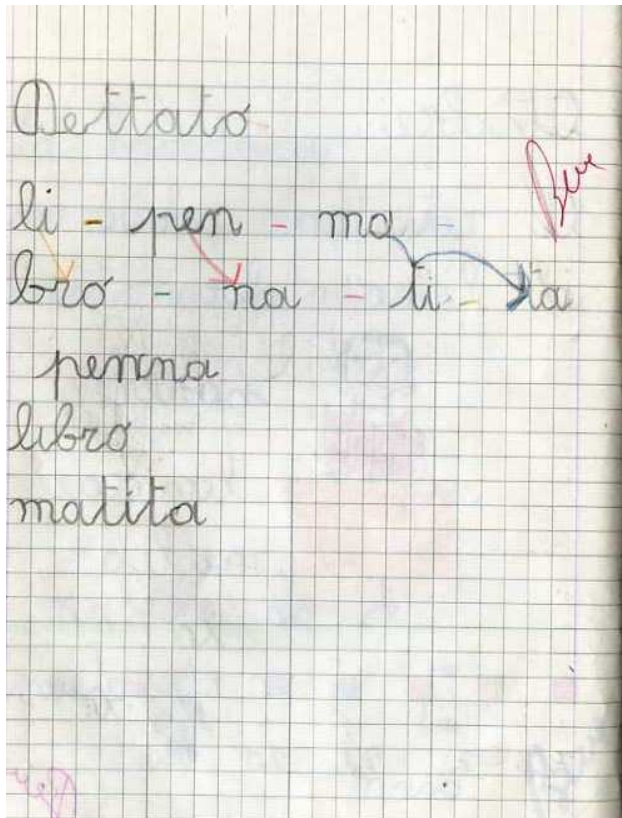 Dettato
Bene
li - pen - ma -
bro - na - ti - ta
penna
libro
matita